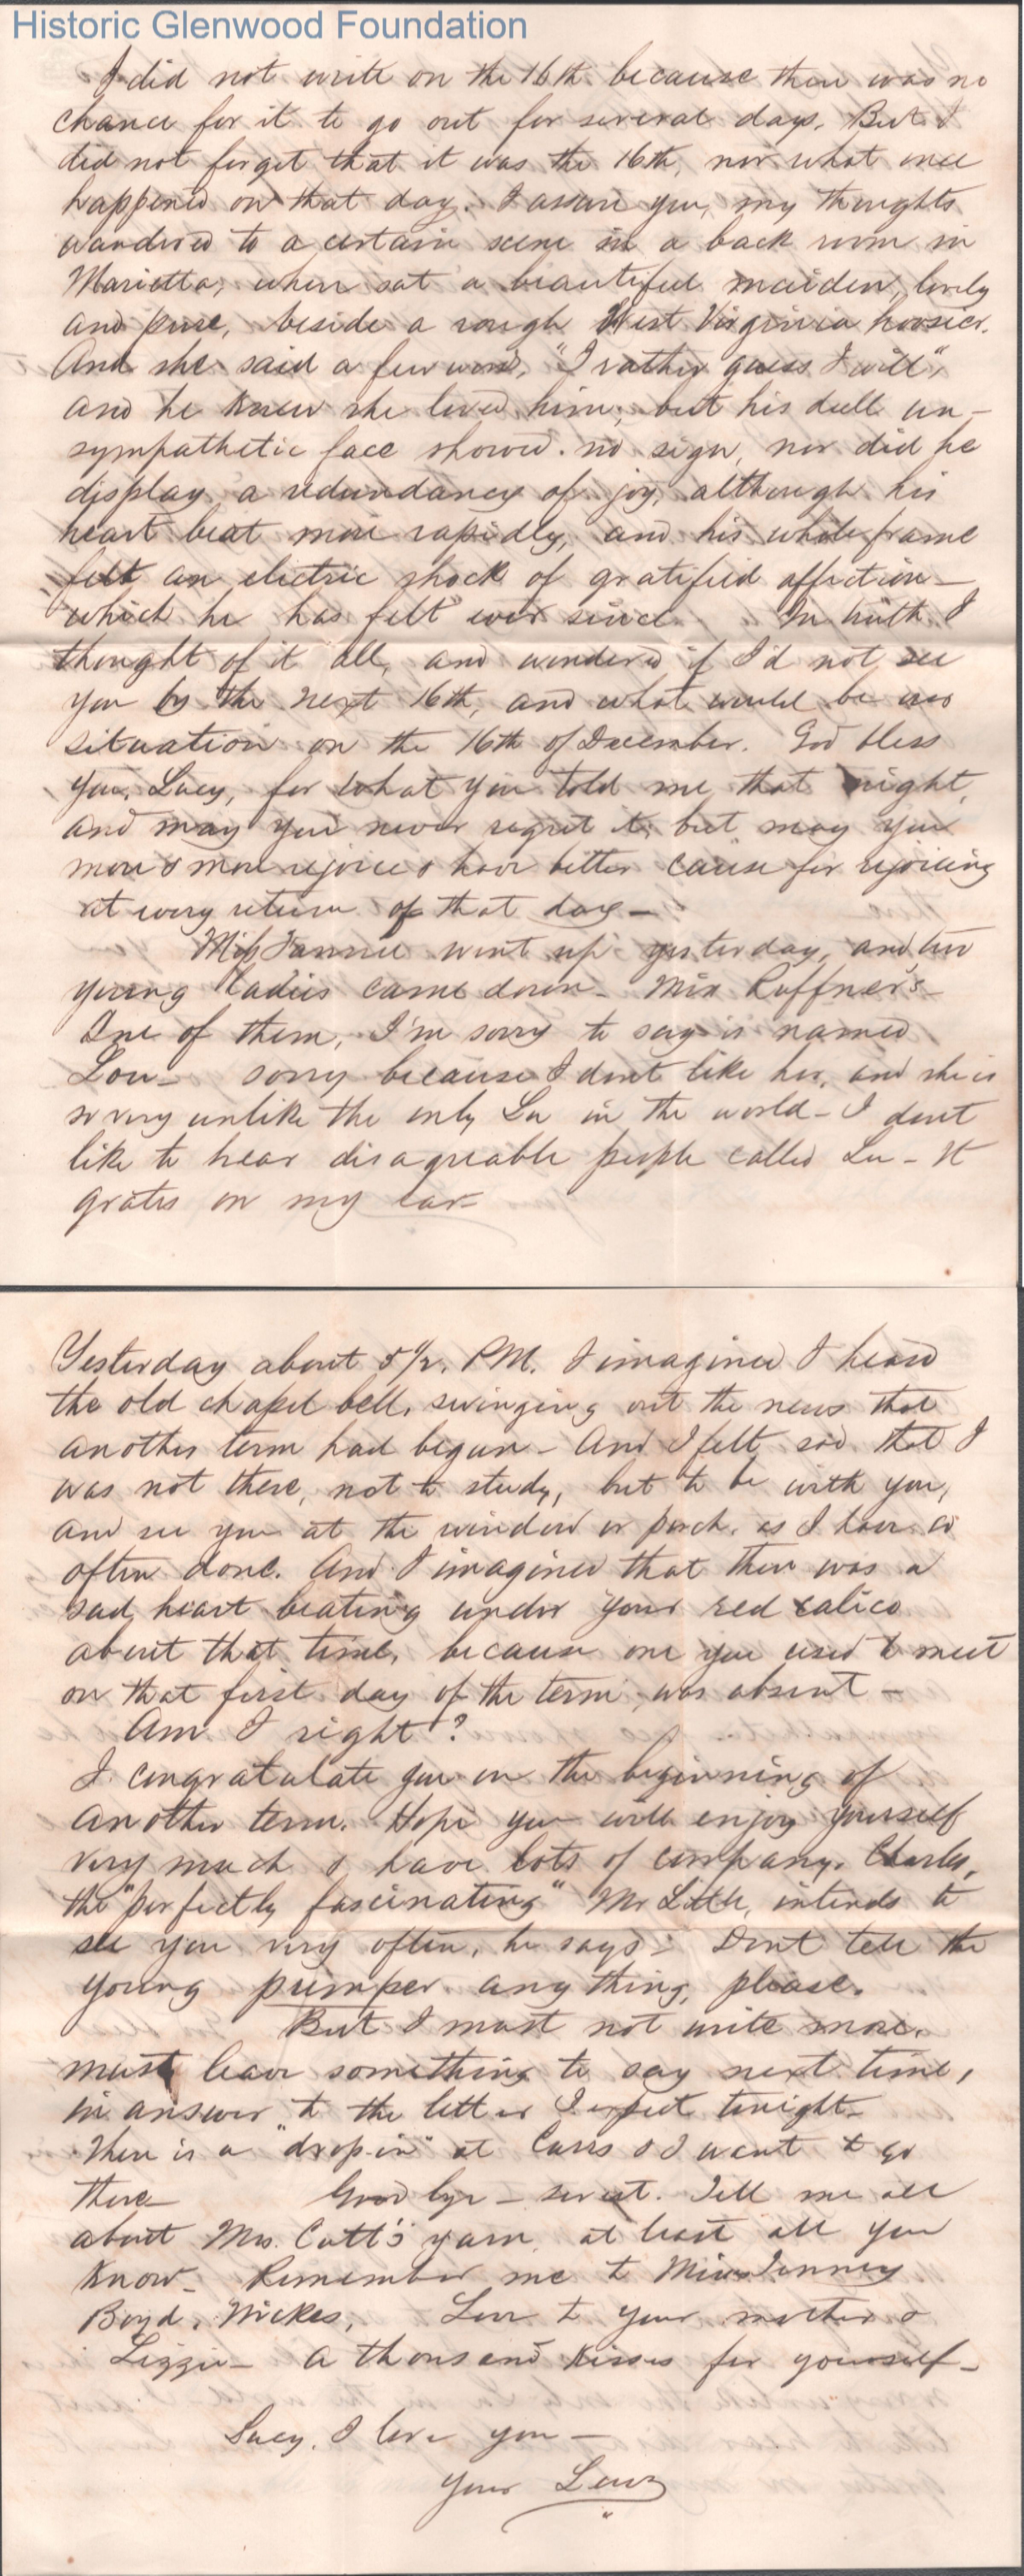 Historic Glenwood Foundation
I did not write on the 16th because there was no
chance for it to go out for several days. But I
did not forget that it was the 16th, nor what once
happened on that day. I assure you, my thoughts
wandered to a certain scene in a back room in
Marietta, where sat a beautiful maiden, lovely
and pure, beside a rough West Virginia hoosier.
And she said a few words, "I rather guess I will",
and he knew she loved him; but his dull un-
sympathetic face showed no sign, nor did he
display a redundancy of joy, although his
heart beat more rapidly, and his whole frame
felt an electric shock of gratified affection —
which he has felt ever since. In truth I
thought of it all, and wondered if I'd not see
you by the next 16th, and what would be our
situation on the 16th of December. God bless
you, Lucy, for what you told me that night,
and may you never regret it; but may you
more & more rejoice & have better cause for rejoicing
at every return of that day —
Miss Fannie went up yesterday, and two
young ladies came down — Miss Ruffner's —
One of them, I'm sorry to say is named
Lou — sorry because I dont like her, and she is
so very unlike the only Lu in the world — I dont
like to hear disagreable people called Lu — It
grates on my ear —
Yesterday about 5 1/2. PM. I imagined I heard
the old chapel bell, swinging out the news that
another term had begun — And I felt sad that I
was not there, not to study, but to be with you,
and see you at the window or porch, as I have so
often done. And I imagined that there was a
sad heart beating under your red calico
about that time, because one you used to meet
on that first day of the term, was absent —
Am I right?
I congratulate you on the beginning of
another term. Hope you will enjoy yourself
very much & have lots of company. Charles,
the "perfectly fascinating" Mr Little, intends to
see you very often, he says — Dont tell the
young pumper anything, please.
But I must not write more.
must leave something to say next time,
in answer to the letter I expect tonight —
There is a "drop in" at Carrs & I want to go
there — Good bye — sweet. Tell me all
about Mrs. Cutt's yarn, at least all you
know — Remember me to Miss Tenney
Boyd, Wickes, Love to your mother &
Lizzie — A thousand kisses for yourself —
Lucy, I love you —
Your Lewis